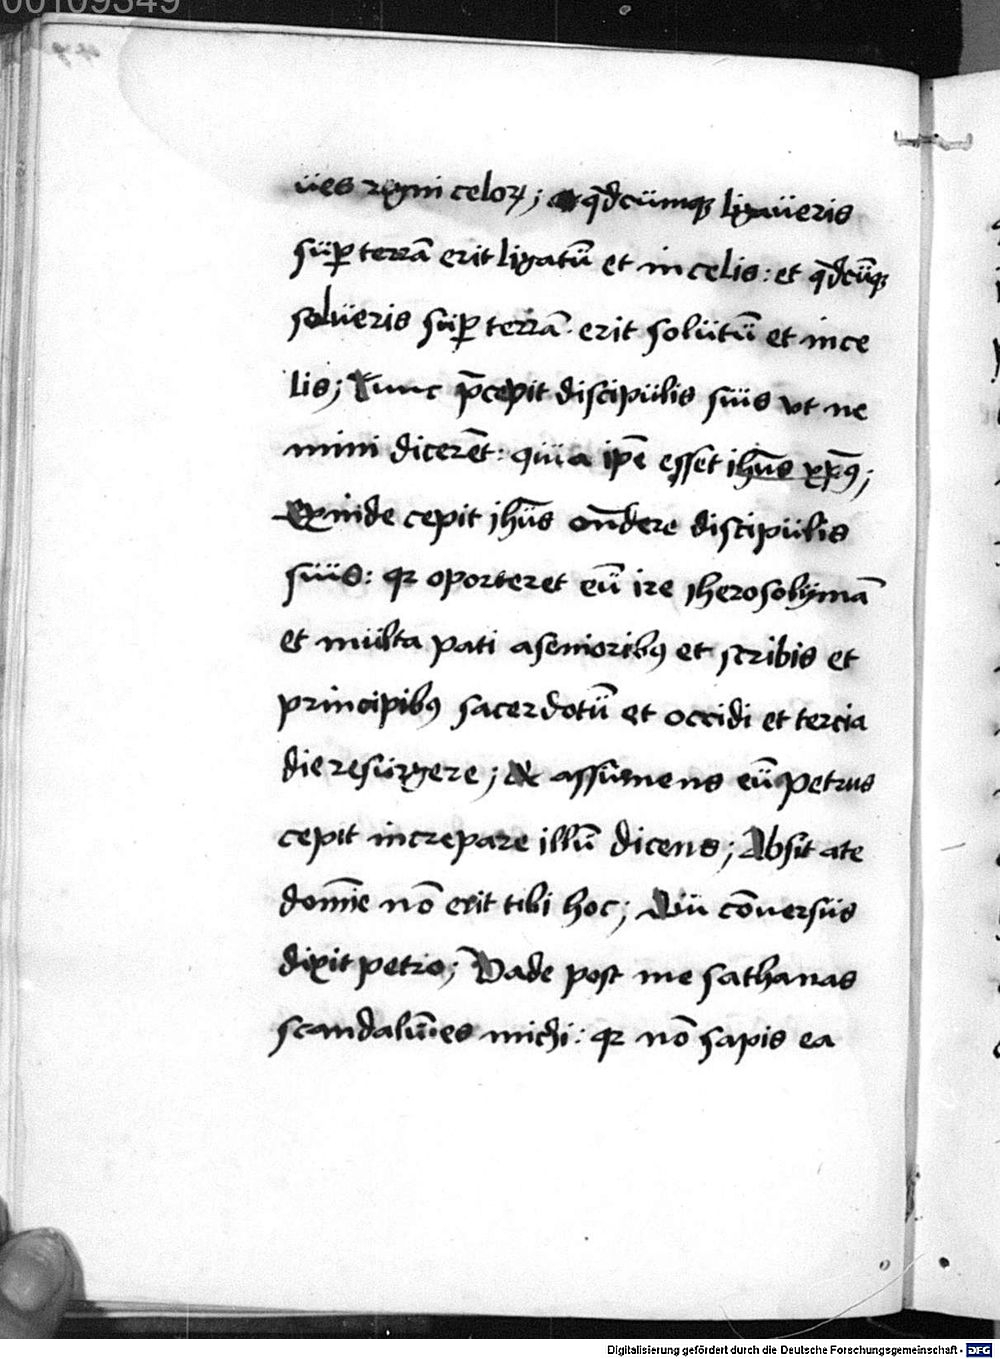 00109349
ües regni celoꝝ; et qd̄cümqꝫ ligaüeris
süꝑ terrā erit ligatū et in celis: et qd̄cūqꝫ
solüeris süꝑ terrā· erit solütū et in ce
lis; Tunc p̄cepit discipülis süis vt ne
mini dicerēt: qüia ip̄e esset ih̄us xp̄ꝯ;
Exinde cepit jh̄us on̄dere discipülis
süis: qꝛ oporteret eū ire jherosolÿmā
et mülta pati a senioribꝯ et scribis et
principibꝯ sacerdotū et occidi et tercia
die resürgere; Et assümens eū petrus
cepit increpare illū dicens; Absit a te
domīe nō erit tibi hoc; Qui cōuersüs
dixit petro; Vade post me sathanas
scandalū es michi: qꝛ nō sapis ea
Digitalisierung gefördert durch die Deutsche Forschungsgemeinschaft - DFG